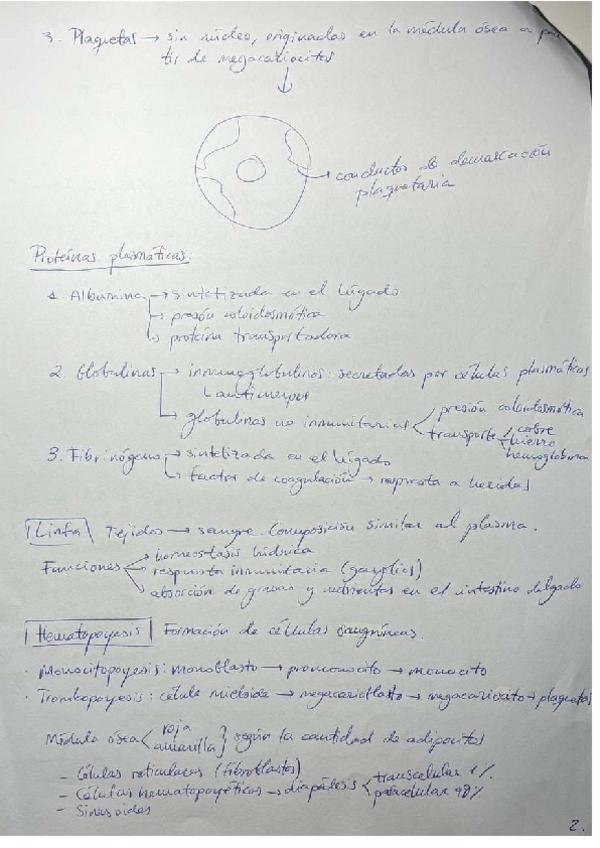 3. Plaquetas → sin núcleo, originadas en la médula ósea a par
tir de megacariocitos
↓
→ conductos de demarcación
plaquetaria
Proteínas plasmáticas.
1. Albúmina → sintetizada en el hígado
→ presión coloidosmótica
→ proteína transportadora
2. Globulinas → inmunoglobulinas: secretadas por células plasmáticas
↳ anticuerpos
→ globulinas no inmunitarias
presión coloidosmótica
transporte
cobre
hierro
hemoglobina
3. Fibrinógeno → sintetizada en el hígado
→ factor de coagulación → respuesta a heridas
Linfa Tejidos → sangre. Composición similar al plasma.
Funciones
homeostasis hídrica
respuesta inmunitaria (ganglios)
absorción de grasas y nutrientes en el intestino delgado
Hematopoyesis Formación de células sanguíneas.
· Monocitopoyesis: monoblasto → promonocito → monocito
· Trombopoyesis: célula mieloide → megacarioblasto → megacariocito → plaquetas
Médula ósea
roja
amarilla
} según la cantidad de adipocitos
- Células reticulares (fibroblastos)
- Células hematopoyéticas → diapédesis
transcelular 1%
paracelular 98%
- Sinusoides
2.